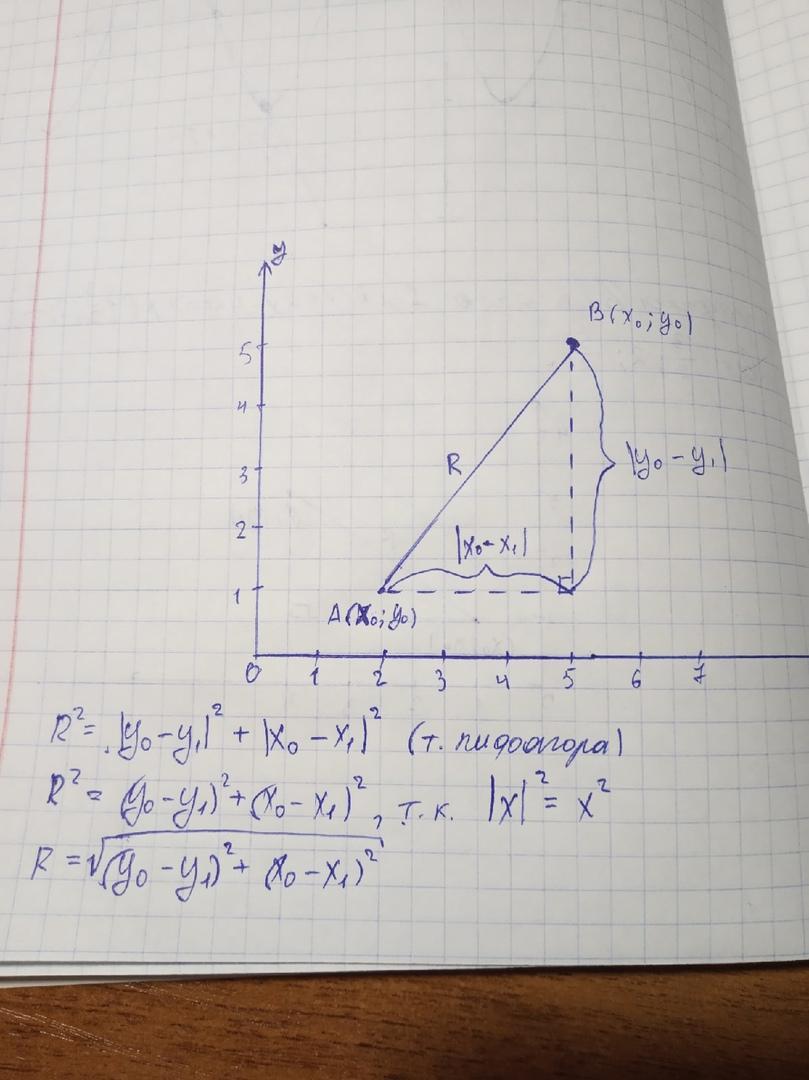 y
B(x₀; y₀)
5
4
R
|y₀ - y₁|
3
2
|x₀ - x₁|
1
A(x₀; y₀)
0 1 2 3 4 5 6 7
R² = |y₀ - y₁|² + |x₀ - x₁|² (т. пифоагора)
R² = (y₀ - y₁)² + (x₀ - x₁)², т.к. |x|² = x²
R = √(y₀ - y₁)² + (x₀ - x₁)²